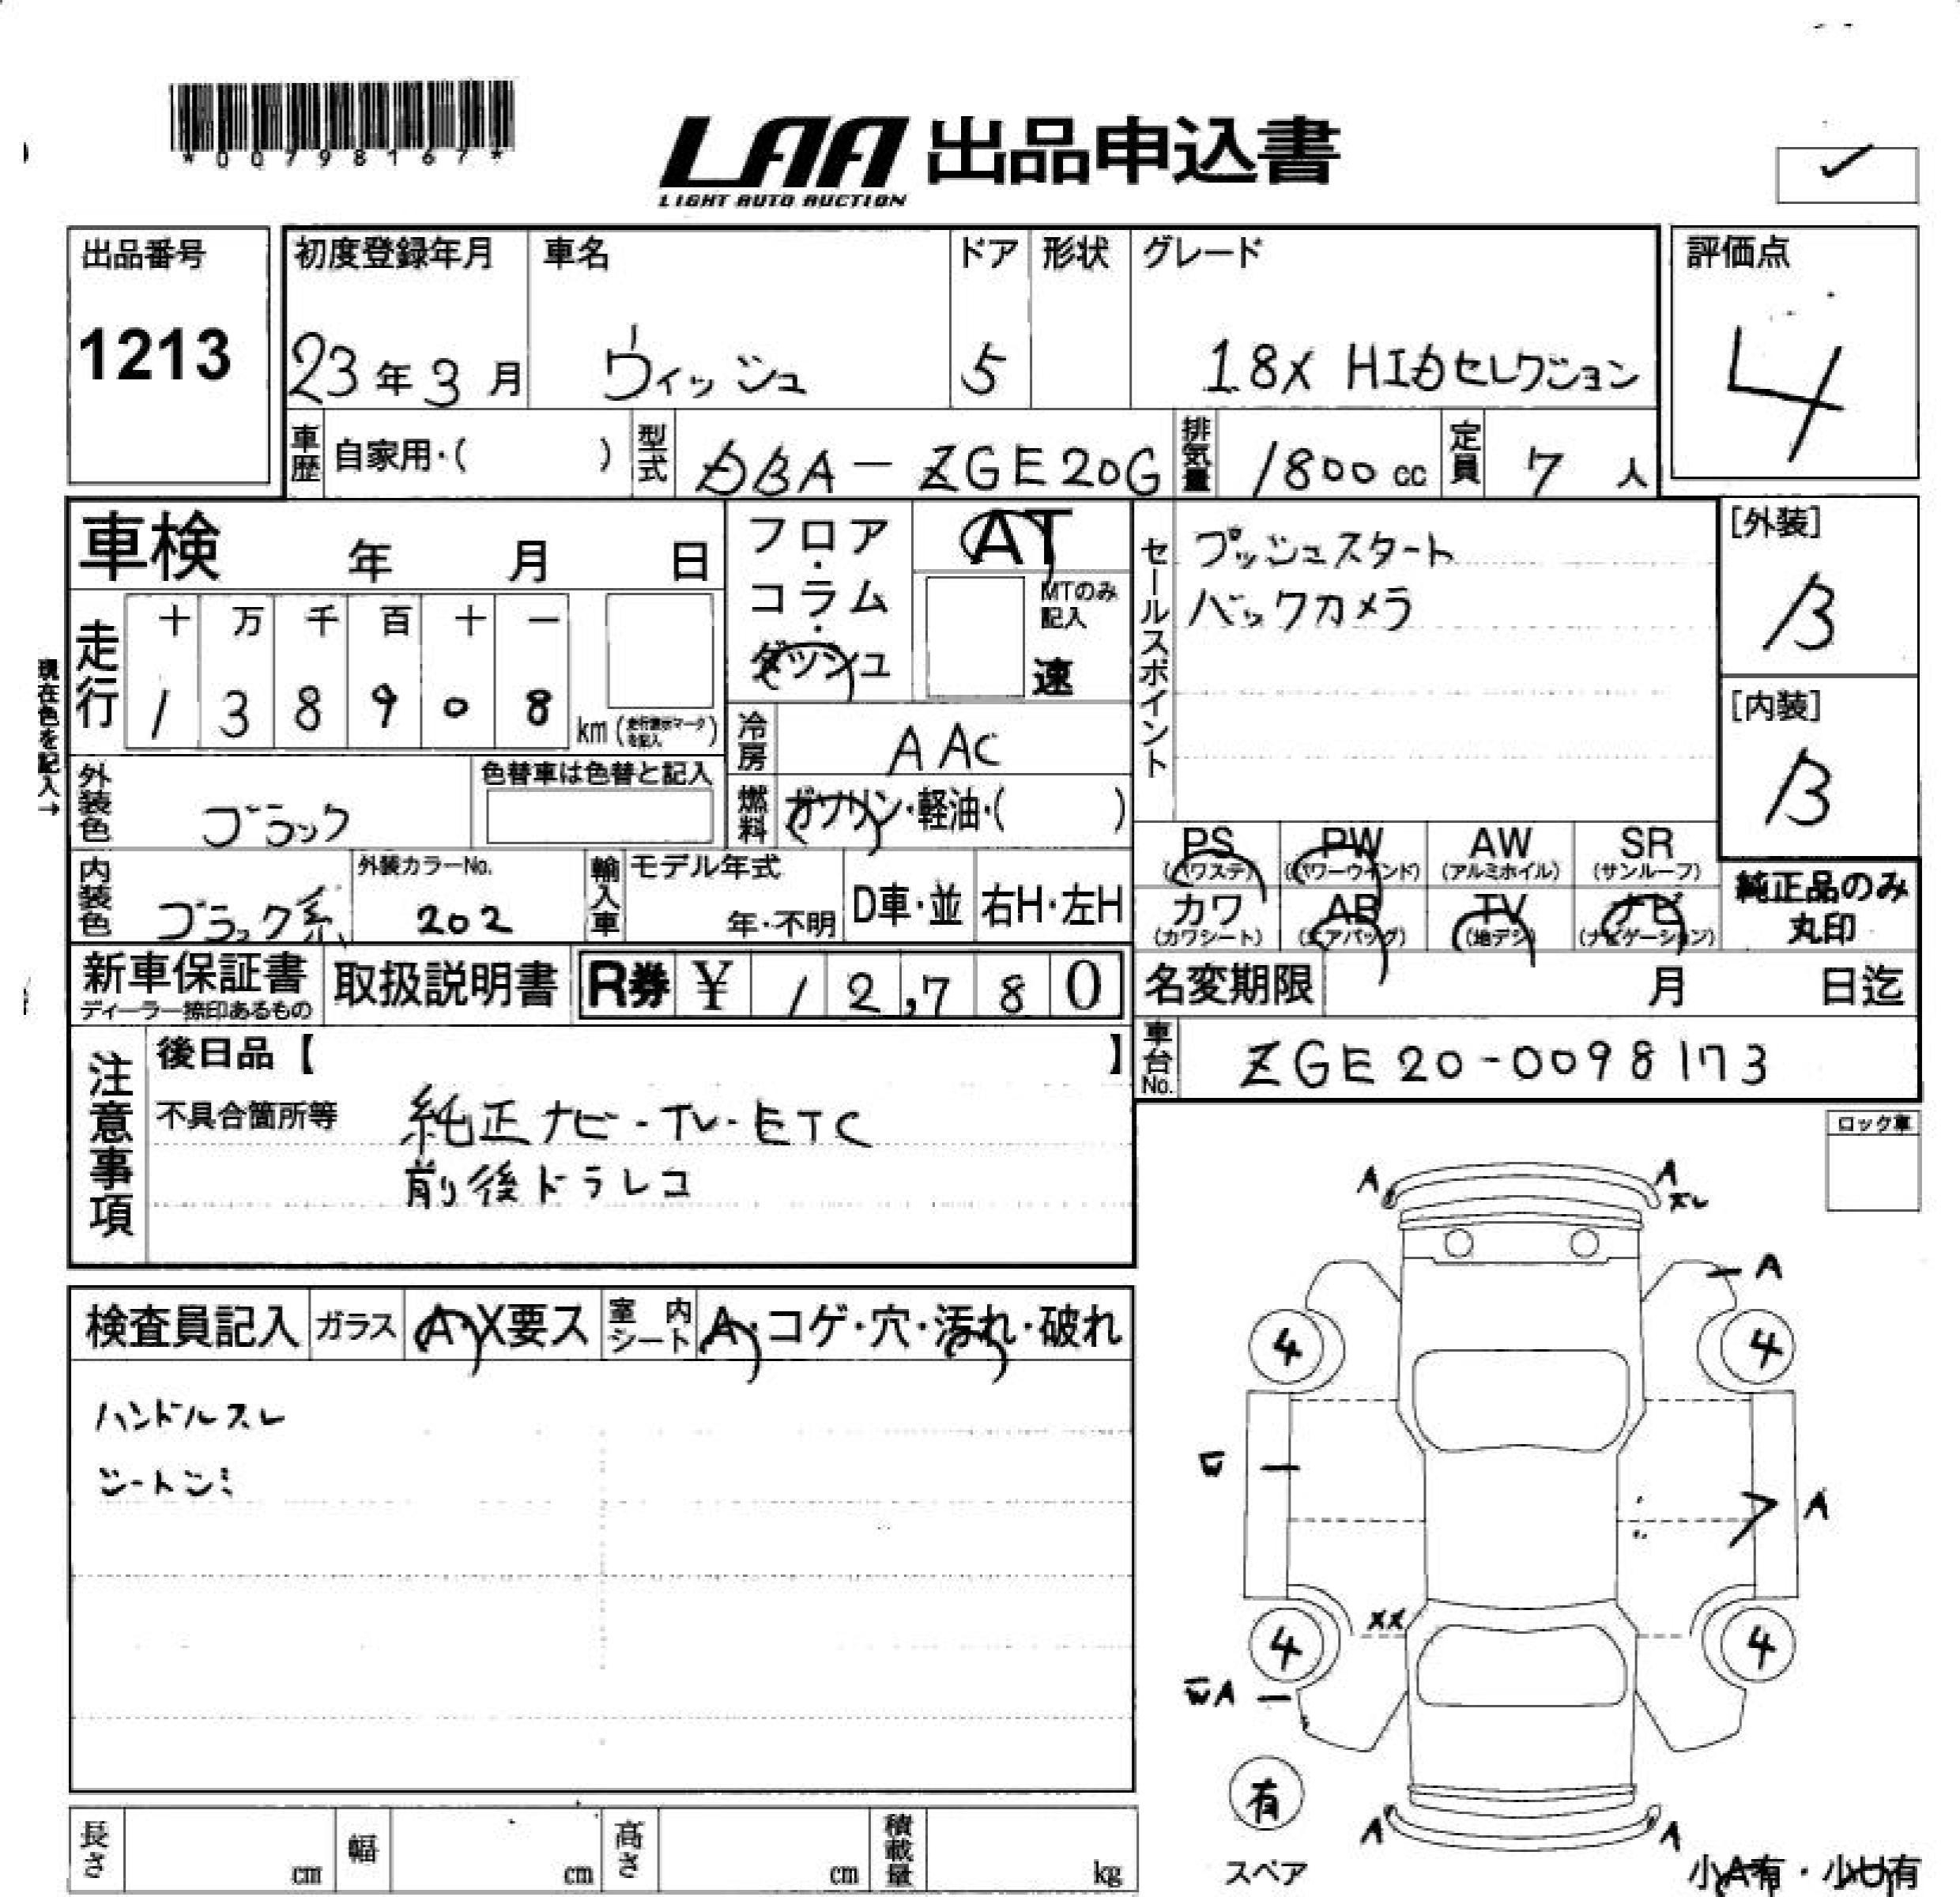 *00798167*
LAA 出品申込書
LIGHT AUTO AUCTION
出品番号
1213
初度登録年月
23年3月
車名
ウィッシュ
ドア
5
形状
グレード
1.8X HIDセレクション
評価点
4
車歴 自家用・( )
型式 DBA-ZGE20G
排気量 1800cc
定員 7人
車検 年 月 日
フロア・コラム・ダッシュ
AT
MTのみ記入
速
セールスポイント
プッシュスタート
バックカメラ
[外装]
B
[内装]
B
現在色を記入→
走行
十 万 千 百 十 一
1 3 8 9 0 8
km (走行表示マークを記入)
冷房 AAC
外装色 ブラック
色替車は色替と記入
燃料 ガソリン・軽油・( )
PS (パワステ)
PW (パワーウインド)
AW (アルミホイル)
SR (サンルーフ)
カワ (カワシート)
AB (エアバッグ)
TV (地デジ)
ナビ (ナビゲーション)
純正品のみ
丸印
内装色 ブラック系
外装カラーNo.
202
輸入車 モデル年式
年・不明
D車・並 右H・左H
新車保証書
ディーラー捺印あるもの
取扱説明書
R券 ¥ 12,780
名変期限 月 日迄
車台No. ZGE20-0098173
注意事項
後日品【 】
不具合箇所等
純正ナビ-TV-ETC
前後ドラレコ
ロック車
検査員記入 ガラス A・X要ス 室内シート A・コゲ・穴・汚れ・破れ
ハンドルスレ
シートシミ
A
A
スレ
A
4
4
A
XX
4
4
A
有
スペア
A
A
小A有・小U有
長さ cm 幅 cm 高さ cm 積載量 kg